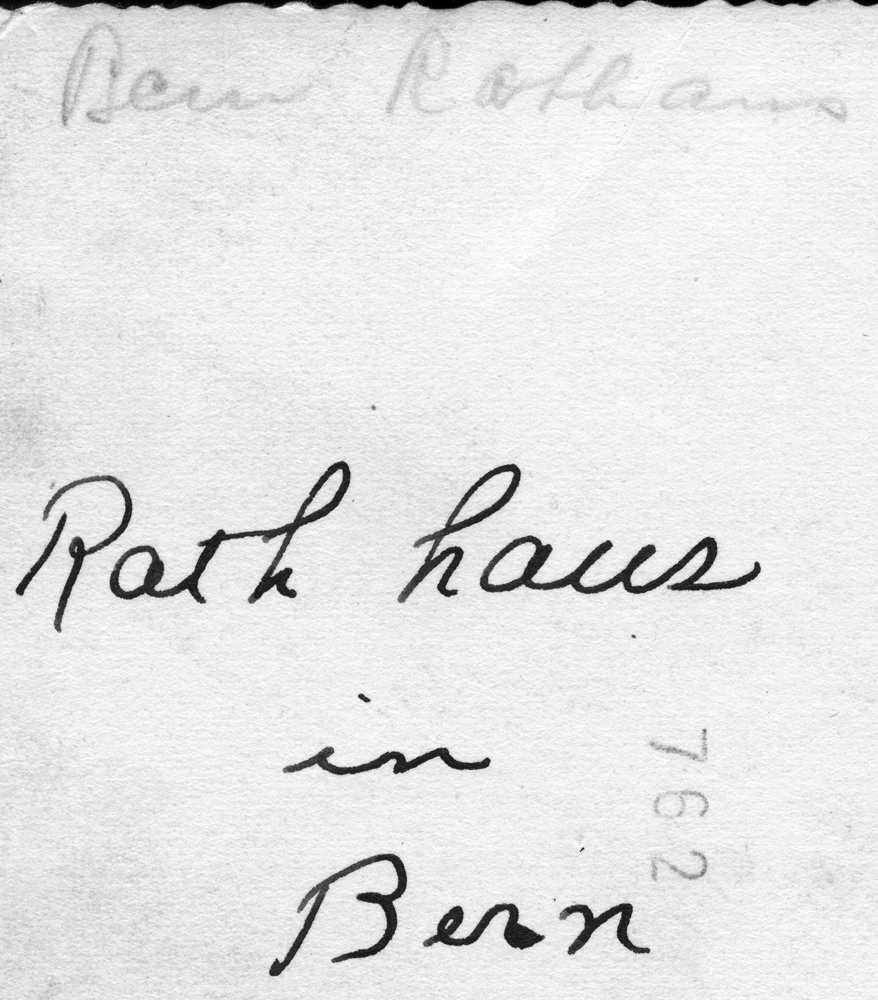 Bern Rathaus
Rath haus
in
762
Bern